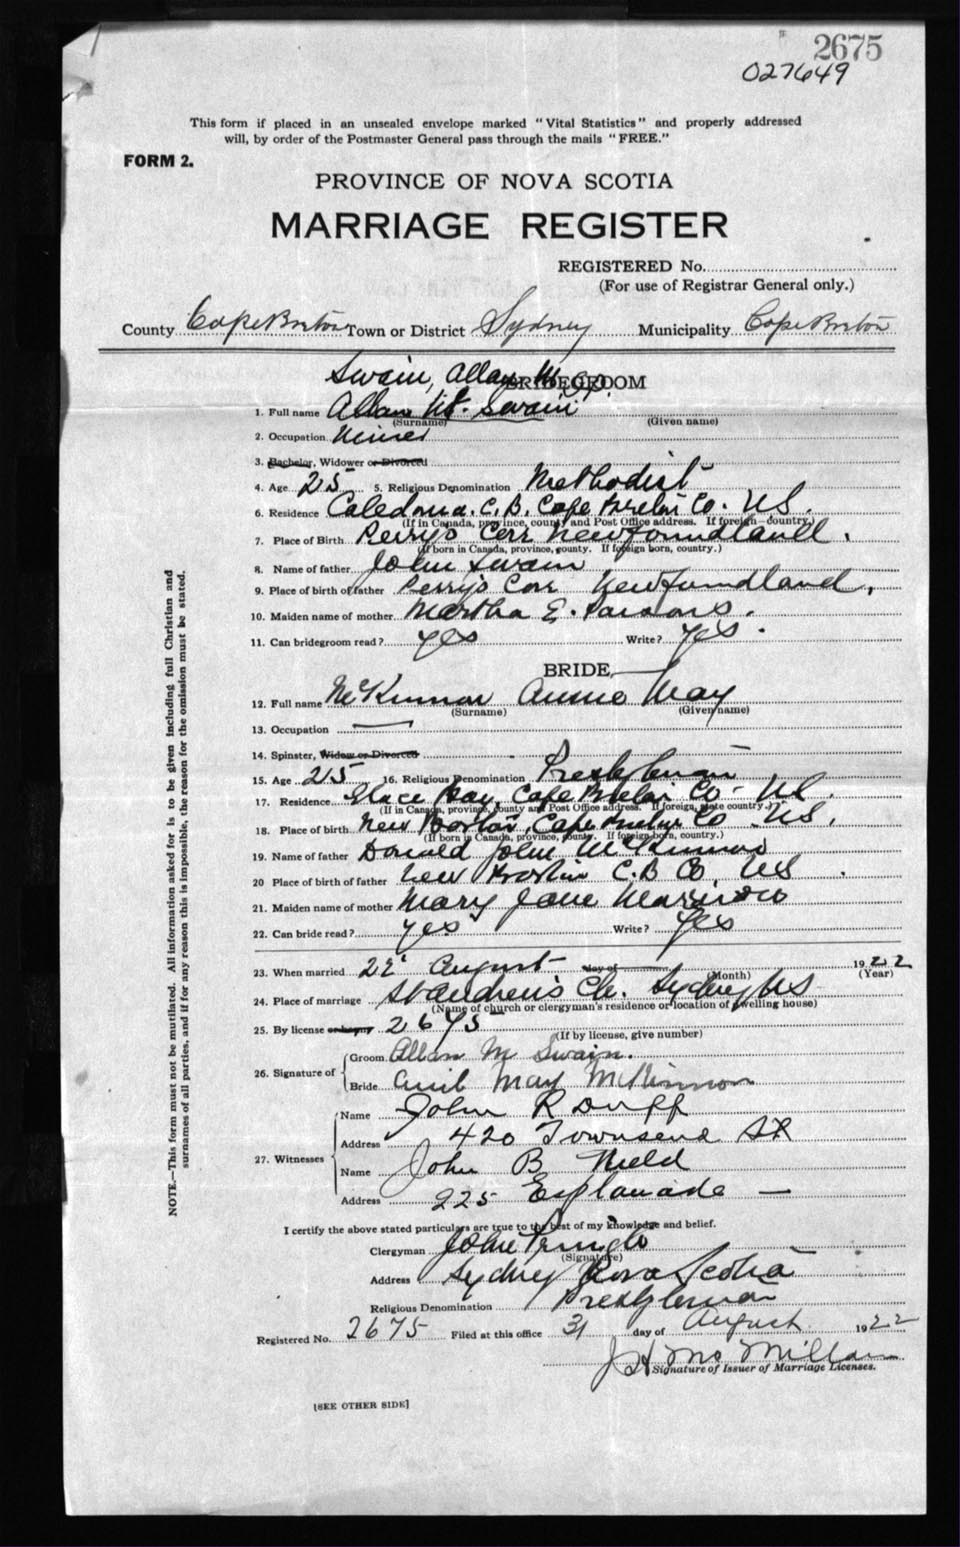 2675
027649
This form if placed in an unsealed envelope marked "Vital Statistics" and properly addressed
will, by order of the Postmaster General pass through the mails "FREE."
FORM 2.
PROVINCE OF NOVA SCOTIA
MARRIAGE REGISTER
REGISTERED No.
(For use of Registrar General only.)
County Cape Breton Town or District Sydney Municipality Cape Breton
Swain, Allan M
BRIDEGROOM
1. Full name Allan M. Swain
(Surname) (Given name)
2. Occupation Miner
3. Bachelor, Widower or Divorced
4. Age 25 5. Religious Denomination Methodist
6. Residence Caledonia. C.B. Cape Breton Co. NS.
(If in Canada, province, county and Post Office address. If foreign country.)
7. Place of Birth Perry's Cove Newfoundland.
(If born in Canada, province, county. If foreign born, country.)
8. Name of father John Swain
9. Place of birth of father Perry's Cove Newfoundland.
10. Maiden name of mother Martha E. Parsons.
11. Can bridegroom read? yes Write? yes.
BRIDE
12. Full name McKinnon Annie May
(Surname) (Given name)
13. Occupation —
14. Spinster, Widow or Divorced
15. Age 25 16. Religious Denomination Presbyterian
17. Residence Glace Bay, Cape Breton Co. NS.
(If in Canada, province, county and Post Office address. If foreign, state country.)
18. Place of birth New Boston, Cape Breton Co. NS.
(If born in Canada, province, county. If foreign born, country.)
19. Name of father Donald John McKinnon
20 Place of birth of father New Boston C.B Co. NS.
21. Maiden name of mother Mary Jane
22. Can bride read? yes Write? yes
23. When married 22 August day of 1922
(Month) (Year)
24. Place of marriage St Andrew's Ch. Sydney NS
(Name of church or clergyman's residence or location of dwelling house)
25. By license or banns 2675
(If by license, give number)
26. Signature of Groom Allan M Swain.
Bride May McKinnon
27. Witnesses Name John R Duff
Address 420 Townsend St
Name John B Nield
Address 225 Esplanade —
I certify the above stated particulars are true to the best of my knowledge and belief.
Clergyman John Pringle
(Signature)
Address Sydney Nova Scotia
Religious Denomination Presbyterian
Registered No. 2675 Filed at this office 31 day of August 1922
J H McMillan
Signature of Issuer of Marriage Licenses.
[SEE OTHER SIDE]
NOTE.—This form must not be mutilated. All information asked for is to be given including full Christian and
surnames of all parties, and if for any reason this is impossible, the reason for the omission must be stated.